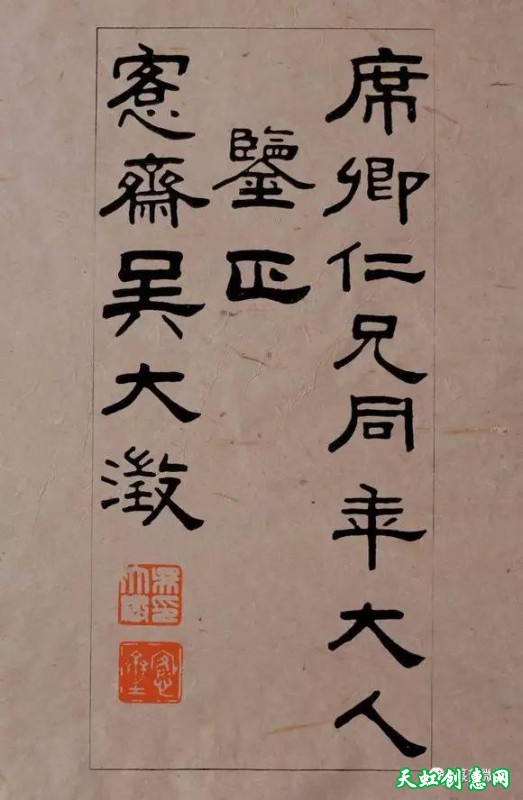 席卿仁兄同年大人
鑒正
愙齋吳大澂
天虹创意网